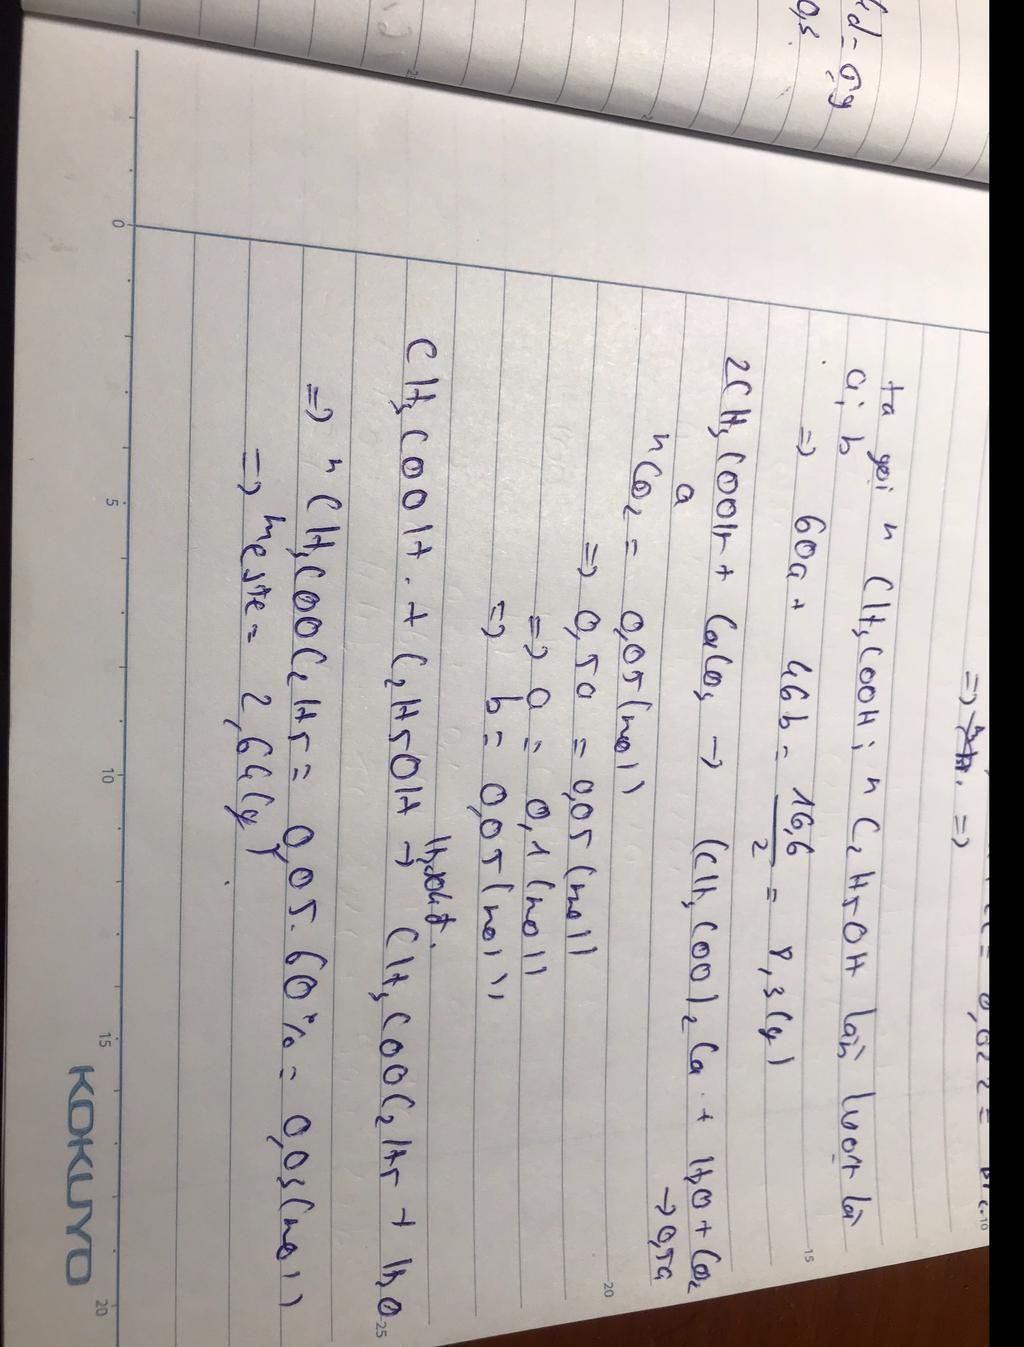 ta gọi n CH3COOH; n C2H5OH lần lượt là
a; b
=> 60a + 46b = 16,6/2 = 8,3(g)
2CH3COOH + CaCO3 → (CH3COO)2Ca + H2O + CO2
a → 0,5a
nCO2 = 0,05(mol)
=> 0,5a = 0,05(mol)
=> a = 0,1(mol)
=> b = 0,05(mol)
H2SO4đ.
CH3COOH + C2H5OH → CH3COOC2H5 + H2O
=> n CH3COOC2H5 = 0,05.60% = 0,03(mol)
=> meste = 2,64(g)
0 5 10 15 20
KOKUYO